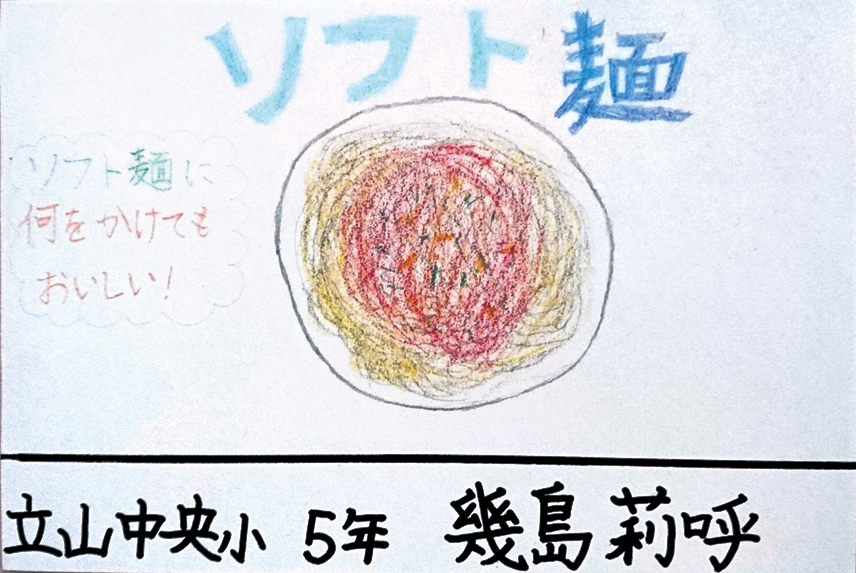 ソフト麺
ソフト麺に
何をかけても
おいしい!
立山中央小 5年 幾島莉呼